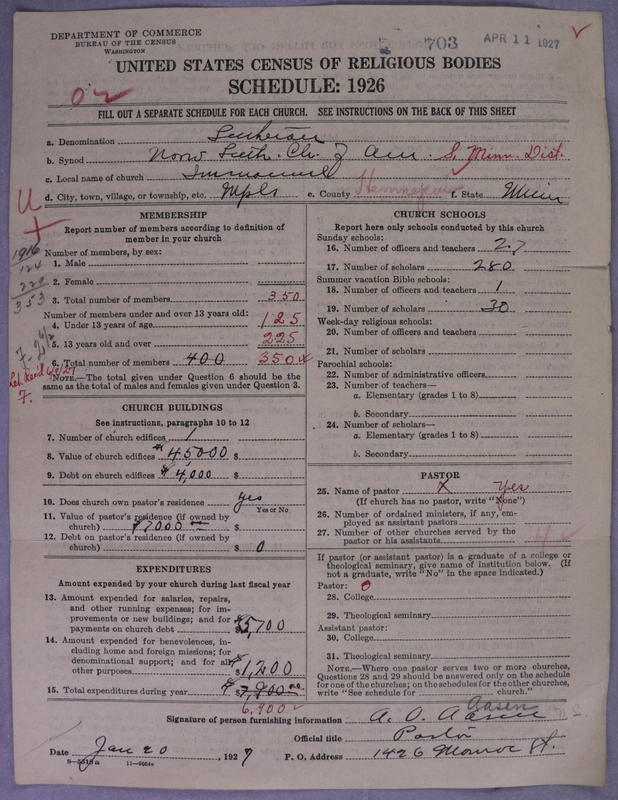 DEPARTMENT OF COMMERCE
BUREAU OF THE CENSUS
WASHINGTON
703
APR 11 1927
UNITED STATES CENSUS OF RELIGIOUS BODIES
SCHEDULE: 1926
FILL OUT A SEPARATE SCHEDULE FOR EACH CHURCH. SEE INSTRUCTIONS ON THE BACK OF THIS SHEET
a. Denomination Lutheran
b. Synod Norw Luth. Ch. of Am. S. Minn. Dist.
c. Local name of church Immanuel
d. City, town, village, or township, etc. Mpls e. County Hennepin f. State Minn
MEMBERSHIP
Report number of members according to definition of
member in your church
Number of members, by sex:
1. Male
2. Female
3. Total number of members 350
Number of members under and over 13 years old:
4. Under 13 years of age 125
5. 13 years old and over 225
6. Total number of members 400 350
NOTE.—The total given under Question 6 should be
same as the total of males and females given under Question 3.
1916
124
229
353
CHURCH BUILDINGS
See instructions, paragraphs 10 to 12
7. Number of church edifices 1
8. Value of church edifices $45000 $
9. Debt on church edifices $4,000 $
10. Does church own pastor's residence yes
Yes or No
11. Value of pastor's residence (if owned by
church) $7000 $
12. Debt on pastor's residence (if owned by
church) $ 0
EXPENDITURES
Amount expended by your church during last fiscal year
13. Amount expended for salaries, repairs,
and other running expenses; for im-
provements or new buildings; and for
payments on church debt $5,700
14. Amount expended for benevolences, in-
cluding home and foreign missions; for
denominational support; and for all
other purposes $1,200
15. Total expenditures during year $7,900
6,900
CHURCH SCHOOLS
Report here only schools conducted by this church
Sunday schools:
16. Number of officers and teachers 27
17. Number of scholars 280
Summer vacation Bible schools:
18. Number of officers and teachers 1
19. Number of scholars 30
Week-day religious schools:
20. Number of officers and teachers
21. Number of scholars
Parochial schools:
22. Number of administrative officers
23. Number of teachers—
a. Elementary (grades 1 to 8)
b. Secondary
24. Number of scholars—
a. Elementary (grades 1 to 8)
b. Secondary
PASTOR
25. Name of pastor X Yes
(If church has no pastor, write "None")
26. Number of ordained ministers, if any, em-
ployed as assistant pastors
27. Number of other churches served by the
pastor or his assistants
If pastor (or assistant pastor) is a graduate of a college or
theological seminary, give name of institution below. (If
not a graduate, write "No" in the space indicated.)
Pastor: 0
28. College
29. Theological seminary
Assistant pastor:
30. College
31. Theological seminary
NOTE.—Where one pastor serves two or more churches,
Questions 28 and 29 should be answered only on the schedule
for one of the churches; on the schedules for the other churches,
write "See schedule for church."
Aasen
Signature of person furnishing information A. O. Aasen
Official title Pastor
Date Jan 20, 1927 P. O. Address 1426 Monroe St.